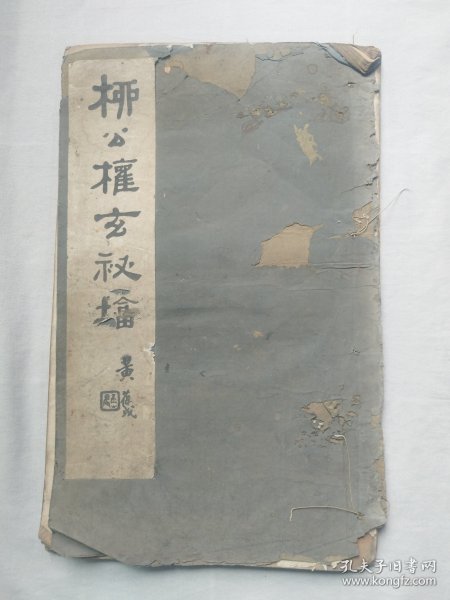 柳公權玄祕塔
黄葆戉
孔夫子旧书网
www.kongfz.com